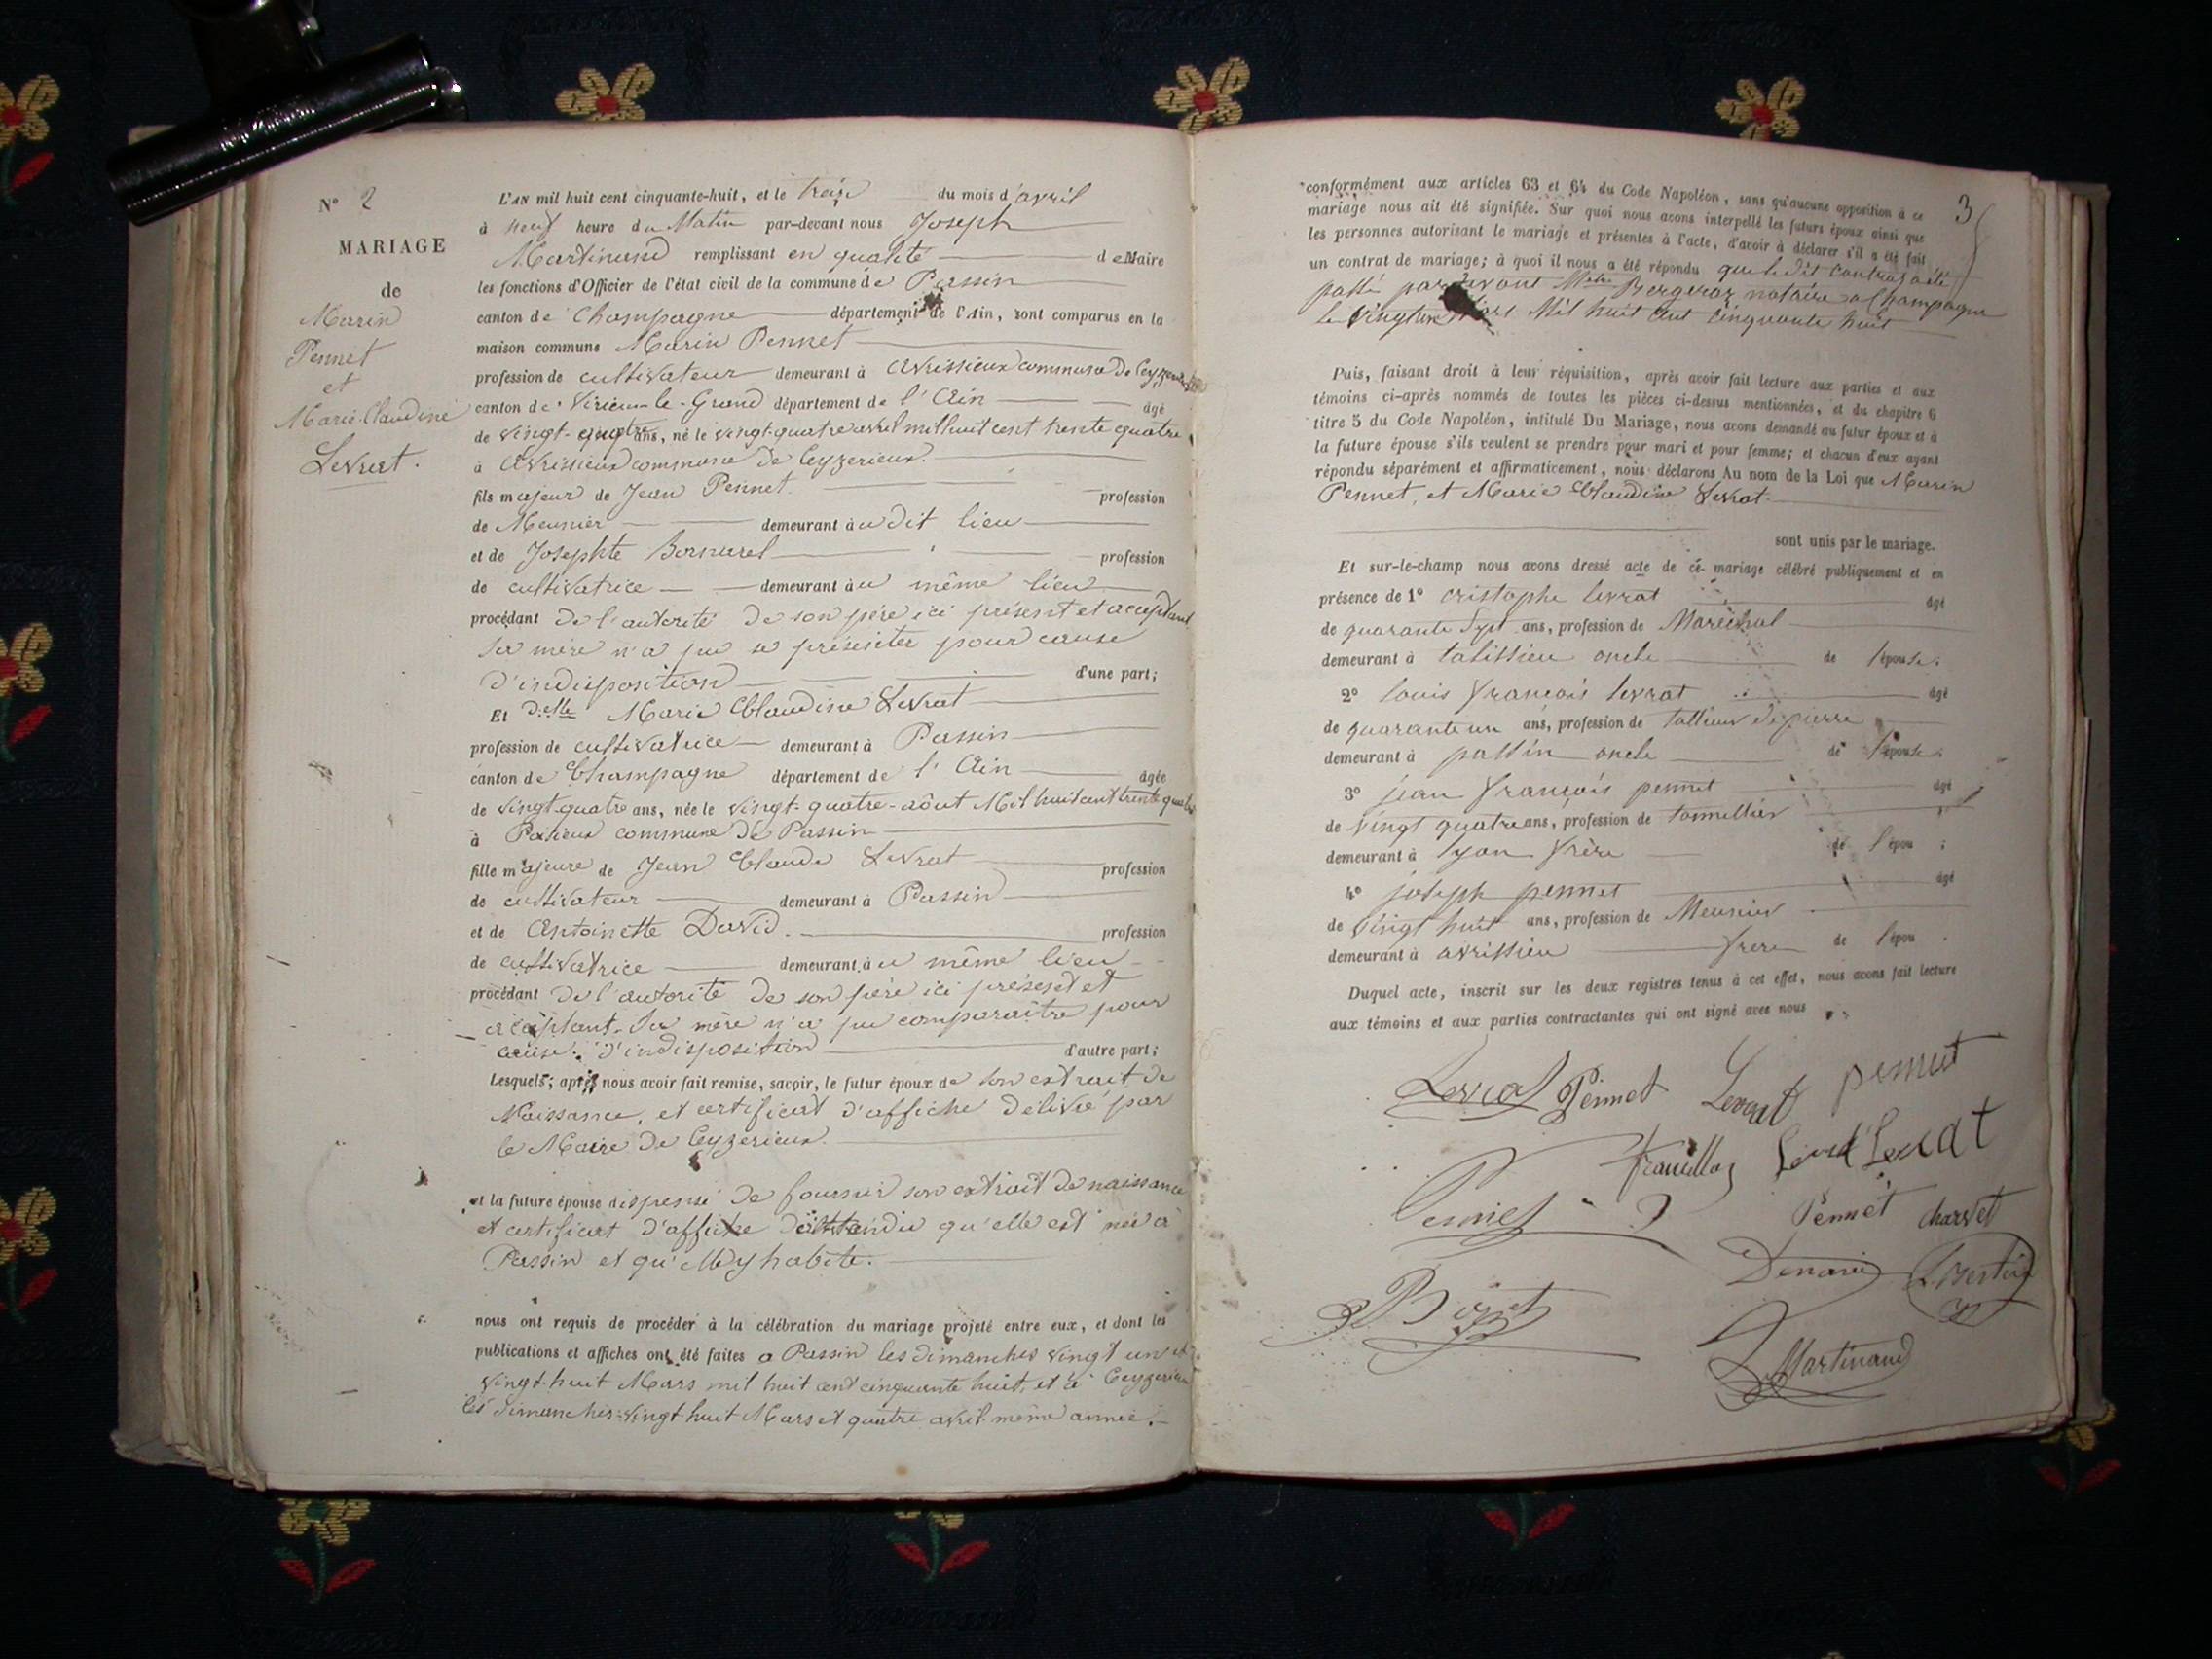 N° 2
MARIAGE
de
Marin
Pennet
et
Marie-Claudine
Levrat.
L'AN mil huit cent cinquante-huit, et le treize du mois d'avril
à neuf heure du Matin par-devant nous Joseph
Martinand remplissant en qualité de Maire
les fonctions d'Officier de l'état civil de la commune de Passin
canton de Champagne département de l'Ain, sont comparus en la
maison commune Marin Pennet
profession de cultivateur demeurant à Avrissieux commune de Ceyzerieux
canton de Virieu-le-Grand département de l'Ain âgé
de vingt-quatre ans, né le vingt-quatre avril mil huit cent trente quatre
à Avrissieux commune de Ceyzerieux.
fils majeur de Jean Pennet. profession
de Meunier demeurant au dit lieu
et de Josephte Bornarel profession
de cultivatrice demeurant au même lieu
procédant de l'autorité de son père ici présent et acceptant
sa mère n'a pu se présenter pour cause
d'indisposition d'une part;
Et Delle Marie Claudine Levrat
profession de cultivatrice demeurant à Passin
canton de Champagne département de l'Ain âgée
de vingt-quatre ans, née le vingt-quatre-août Mil huit cent trente quatre
à Poisieux commune de Passin
fille majeure de Jean Claude Levrat profession
de cultivateur demeurant à Passin
et de Antoinette David. profession
de cultivatrice demeurant au même lieu
procédant de l'autorité de son père ici présent et
acceptant. Sa mère n'a pu comparaître pour
cause d'indisposition d'autre part;
Lesquels; après nous avoir fait remise, savoir, le futur époux de son extrait de
Naissance, et certificat d'affiche délivré par
le Maire de Ceyzerieux.
et la future épouse dispensé de fournir son extrait de naissance
et certificat d'affiche attendu qu'elle est née à
Passin et qu'elle y habite.
nous ont requis de procéder à la célébration du mariage projeté entre eux, et dont les
publications et affiches ont été faites à Passin les dimanches vingt un et
vingt-huit Mars mil huit cent cinquante huit, et à Ceyzerieux
les dimanches vingt huit Mars et quatre avril même année.
3
conformément aux articles 63 et 64 du Code Napoléon, sans qu'aucune opposition à ce
mariage nous ait été signifiée. Sur quoi nous avons interpellé les futurs époux ainsi que
les personnes autorisant le mariage et présentes à l'acte, d'avoir à déclarer s'il a été fait
un contrat de mariage; à quoi il nous a été répondu que le dit contrat a été
passé par devant Mtre Bergeroz notaire a Champagne
le vingt un Mars Mil huit cent cinquante huit
Puis, faisant droit à leur réquisition, après avoir fait lecture aux parties et aux
témoins ci-après nommés de toutes les pièces ci-dessus mentionnées, et du chapitre 6
titre 5 du Code Napoléon, intitulé Du Mariage, nous avons demandé au futur époux et à
la future épouse s'ils veulent se prendre pour mari et pour femme; et chacun d'eux ayant
répondu séparément et affirmativement, nous déclarons Au nom de la Loi que Marin
Pennet, et Marie Claudine Levrat.
sont unis par le mariage.
Et sur-le-champ nous avons dressé acte de ce mariage célébré publiquement et en
présence de 1° cristophe levrat âgé
de quarante sept ans, profession de Maréchal
demeurant à talissieu oncle de l'épouse;
2° louis françois levrat âgé
de quarante un ans, profession de tallieur de pierre
demeurant à passin oncle de l'épouse;
3° jean françois pennet âgé
de vingt quatre ans, profession de tonnellier
demeurant à lyon frère de l'épou ;
4° joseph pennet âgé
de vingt huit ans, profession de Meunier
demeurant à avrissieu frere de l'épou .
Duquel acte, inscrit sur les deux registres tenus à cet effet, nous avons fait lecture
aux témoins et aux parties contractantes qui ont signé avec nous
Levrat Pennet Levrat pennet
Levrat
Pennet Pennet charvet
L. Bertin
Martinand